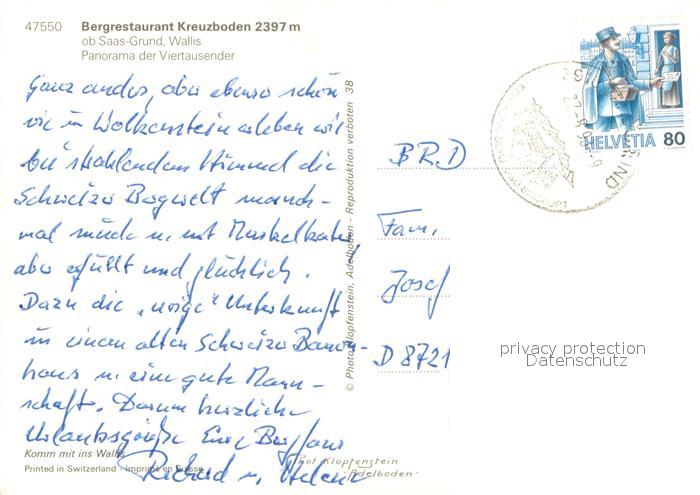 47550 Bergrestaurant Kreuzboden 2397 m
ob Saas-Grund, Wallis
Panorama der Viertausender
Ganz anders, aber ebenso schön
wie in Wolkenstein erleben wir
bei strahlendem Himmel die
Schweizer Bergwelt manch-
mal müde u. mit Muskelkater,
aber erfüllt und glücklich.
Dazu die "urige" Unterkunft
in einem alten Schweizer Bauern-
haus u. eine gute Mann-
schaft. Darum herzliche
Urlaubsgrüße Eure Bergfans
Richard u. Helene
Komm mit ins Wallis
Printed in Switzerland - Imprimé en Suisse
© Photo Klopfenstein, Adelboden - Reproduktion verboten 38
Phot Klopfenstein
-Adelboden-
HELVETIA 80
BRD
Fam.
Josef
D 8721
privacy protection
Datenschutz